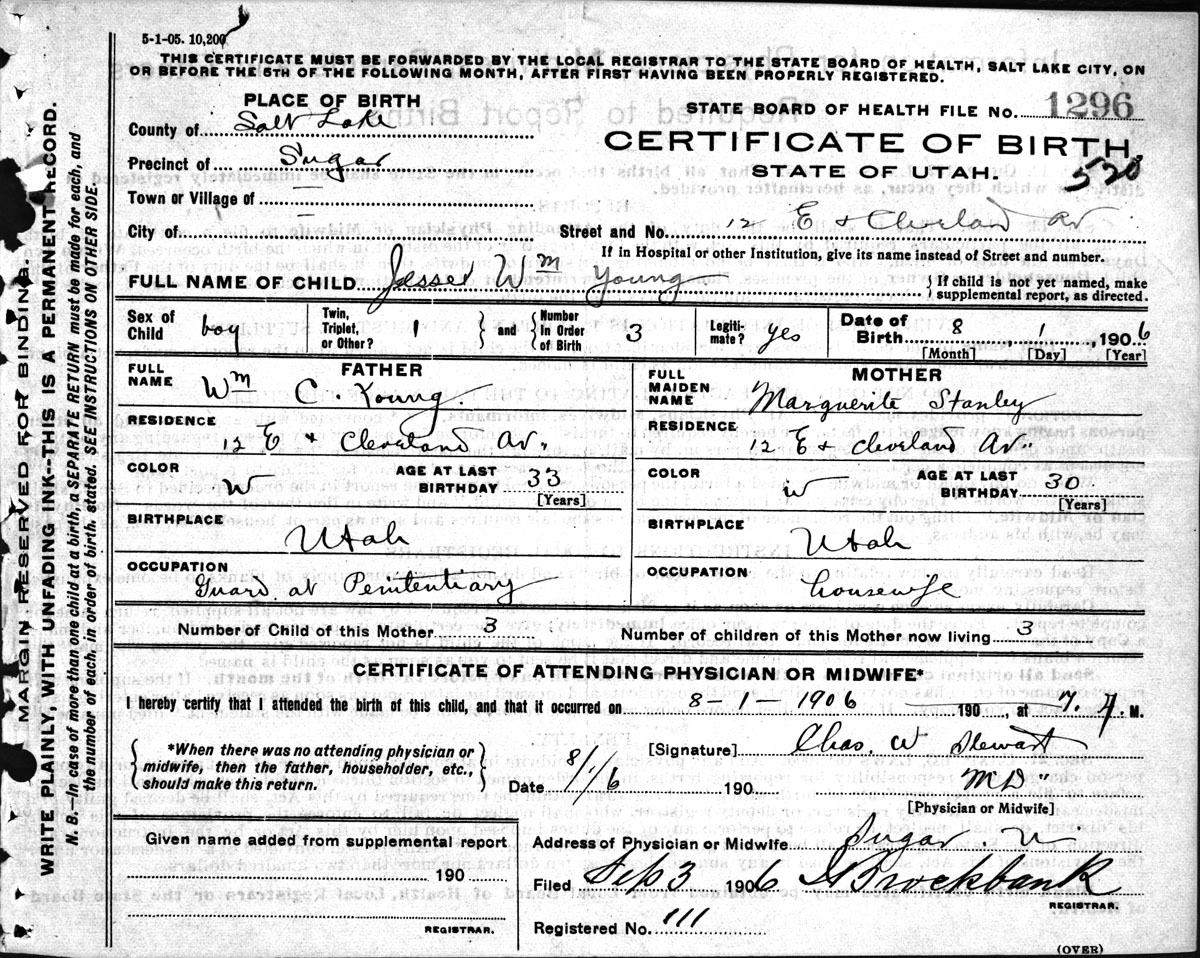 5-1-05. 10,200
THIS CERTIFICATE MUST BE FORWARDED BY THE LOCAL REGISTRAR TO THE STATE BOARD OF HEALTH, SALT LAKE CITY, ON
OR BEFORE THE 5TH OF THE FOLLOWING MONTH, AFTER FIRST HAVING BEEN PROPERLY REGISTERED.
PLACE OF BIRTH
County of Salt Lake
Precinct of Sugar
Town or Village of —
City of —
STATE BOARD OF HEALTH FILE No. 1296
CERTIFICATE OF BIRTH
STATE OF UTAH. 520
Street and No. 12 E & Cleveland Av
If in Hospital or other Institution, give its name instead of Street and number.
FULL NAME OF CHILD Wm Young } If child is not yet named, make supplemental report, as directed.
Sex of Child boy Twin, Triplet, or Other? 1 } and { Number in Order of Birth 3 Legitimate? yes Date of Birth 8, 1, 1906
[Month] [Day] [Year]
FATHER
FULL NAME Wm C. Young.
RESIDENCE 12 E & Cleveland Av.
COLOR W AGE AT LAST BIRTHDAY 33
[Years]
BIRTHPLACE Utah
OCCUPATION Guard at Penitentiary
MOTHER
FULL MAIDEN NAME Marguerite Stanley
RESIDENCE 12 E & Cleveland Av.
COLOR W AGE AT LAST BIRTHDAY 30
[Years]
BIRTHPLACE Utah
OCCUPATION housewife
Number of Child of this Mother 3 Number of children of this Mother now living 3
CERTIFICATE OF ATTENDING PHYSICIAN OR MIDWIFE*
I hereby certify that I attended the birth of this child, and that it occurred on 8-1-1906 190 , at 7. M.
{ *When there was no attending physician or
midwife, then the father, householder, etc.,
should make this return. }
[Signature] Chas. W Stewart
Date 8/1/6 190 MD
[Physician or Midwife]
Given name added from supplemental report
190
REGISTRAR.
Address of Physician or Midwife Sugar. U
Filed Sep 3 1906 Brockbank
REGISTRAR.
Registered No. 111
(OVER)
MARGIN RESERVED FOR BINDING.
WRITE PLAINLY, WITH UNFADING INK--THIS IS A PERMANENT RECORD.
N. B.—In case of more than one child at a birth, a SEPARATE RETURN must be made for each, and
the number of each, in order of birth, stated. SEE INSTRUCTIONS ON OTHER SIDE.